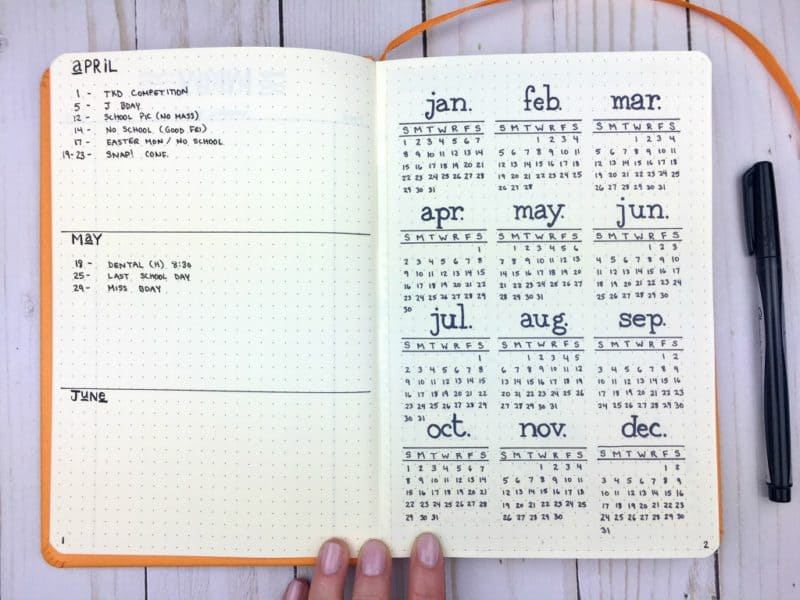 APRIL
1 - TKD COMPETITION
5 - J BDAY
12 - SCHOOL PIC (NO MASS)
14 - NO SCHOOL (GOOD FRI)
17 - EASTER MON / NO SCHOOL
19-23 - SNAP! CONF.
MAY
18 - DENTAL (H) 8:30
25 - LAST SCHOOL DAY
29 - MISS BDAY
JUNE
1
jan.
S M T W R F S
1 2 3 4 5 6 7
8 9 10 11 12 13 14
15 16 17 18 19 20 21
22 23 24 25 26 27 28
29 30 31
feb.
S M T W R F S
1 2 3 4
5 6 7 8 9 10 11
12 13 14 15 16 17 18
19 20 21 22 23 24 25
26 27 28
mar.
S M T W R F S
1 2 3 4
5 6 7 8 9 10 11
12 13 14 15 16 17 18
19 20 21 22 23 24 25
26 27 28 29 30 31
apr.
S M T W R F S
1
2 3 4 5 6 7 8
9 10 11 12 13 14 15
16 17 18 19 20 21 22
23 24 25 26 27 28 29
30
may.
S M T W R F S
1 2 3 4 5 6
7 8 9 10 11 12 13
14 15 16 17 18 19 20
21 22 23 24 25 26 27
28 29 30 31
jun.
S M T W R F S
1 2 3
4 5 6 7 8 9 10
11 12 13 14 15 16 17
18 19 20 21 22 23 24
25 26 27 28 29 30
jul.
S M T W R F S
1
2 3 4 5 6 7 8
9 10 11 12 13 14 15
16 17 18 19 20 21 22
23 24 25 26 27 28 29
30 31
aug.
S M T W R F S
1 2 3 4 5
6 7 8 9 10 11 12
13 14 15 16 17 18 19
20 21 22 23 24 25 26
27 28 29 30 31
sep.
S M T W R F S
1 2
3 4 5 6 7 8 9
10 11 12 13 14 15 16
17 18 19 20 21 22 23
24 25 26 27 28 29 30
oct.
S M T W R F S
1 2 3 4 5 6 7
8 9 10 11 12 13 14
15 16 17 18 19 20 21
22 23 24 25 26 27 28
29 30 31
nov.
S M T W R F S
1 2 3 4
5 6 7 8 9 10 11
12 13 14 15 16 17 18
19 20 21 22 23 24 25
26 27 28 29 30
dec.
S M T W R F S
1 2
3 4 5 6 7 8 9
10 11 12 13 14 15 16
17 18 19 20 21 22 23
24 25 26 27 28 29 30
31
2